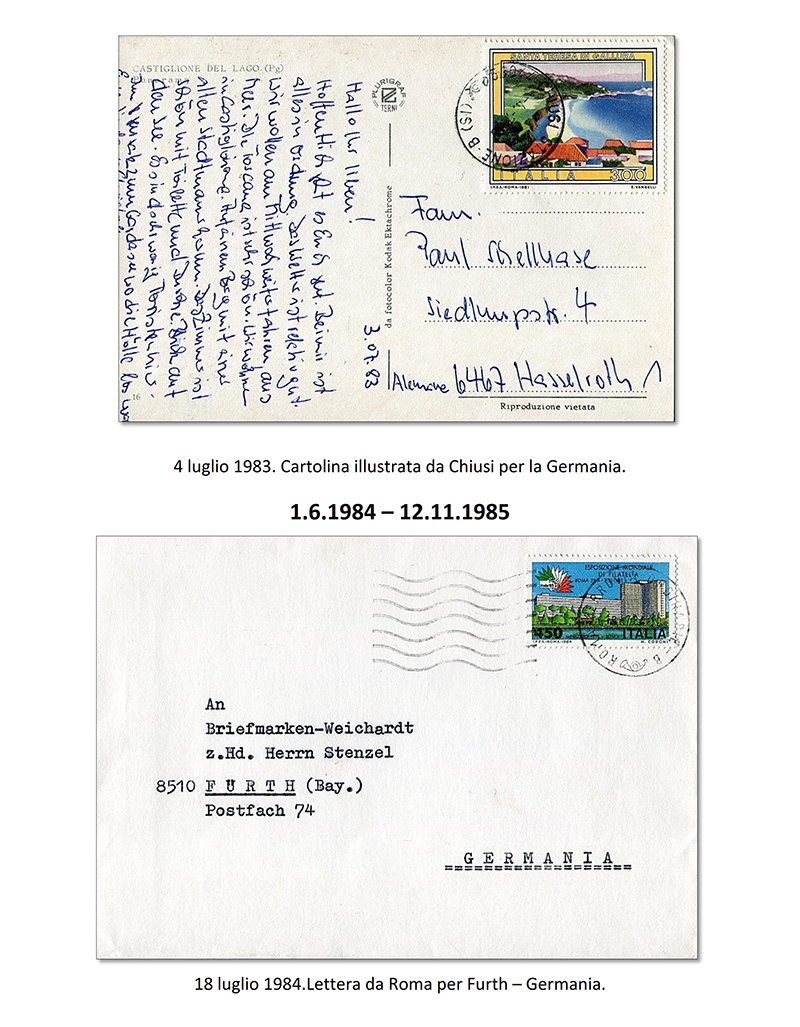 CASTIGLIONE DEL LAGO (Pg)
Panorama
16
3.07.83
Hallo Ihr lieben!
Hoffentlich geht es Euch gut. Bei mir ist
alles in Ordnung. Das Wetter ist relativ gut.
Wir wollen am Mittwoch weiterfahren, ans
Meer. Die Toscana ist sehr schön. Wir wohnen
in Castiglione. Auf einem Berg mit einer
alten Stadtmauer
schön mit Toilette und Dusche. Blick auf
den See. Es sind sehr wenig Touristen hier.
PLURIGRAF
TERNI
da fotocolor Kodak Ektachrome
SANTA TERESA DI GALLURA
ITALIA 300
I.P.Z.S.-ROMA-1981 E. VANGELLI
Fam.
Paul Schellhase
Siedlungsstr. 4
Alemane 6467 Hasselroth 1
Riproduzione vietata
4 luglio 1983. Cartolina illustrata da Chiusi per la Germania.
1.6.1984 – 12.11.1985
ESPOSIZIONE MONDIALE
DI FILATELIA
450 ITALIA
I.P.Z.S.-ROMA-1984
An
Briefmarken-Weichardt
z.Hd. Herrn Stenzel
8510 FÜRTH (Bay.)
Postfach 74
GERMANIA
18 luglio 1984.Lettera da Roma per Furth – Germania.